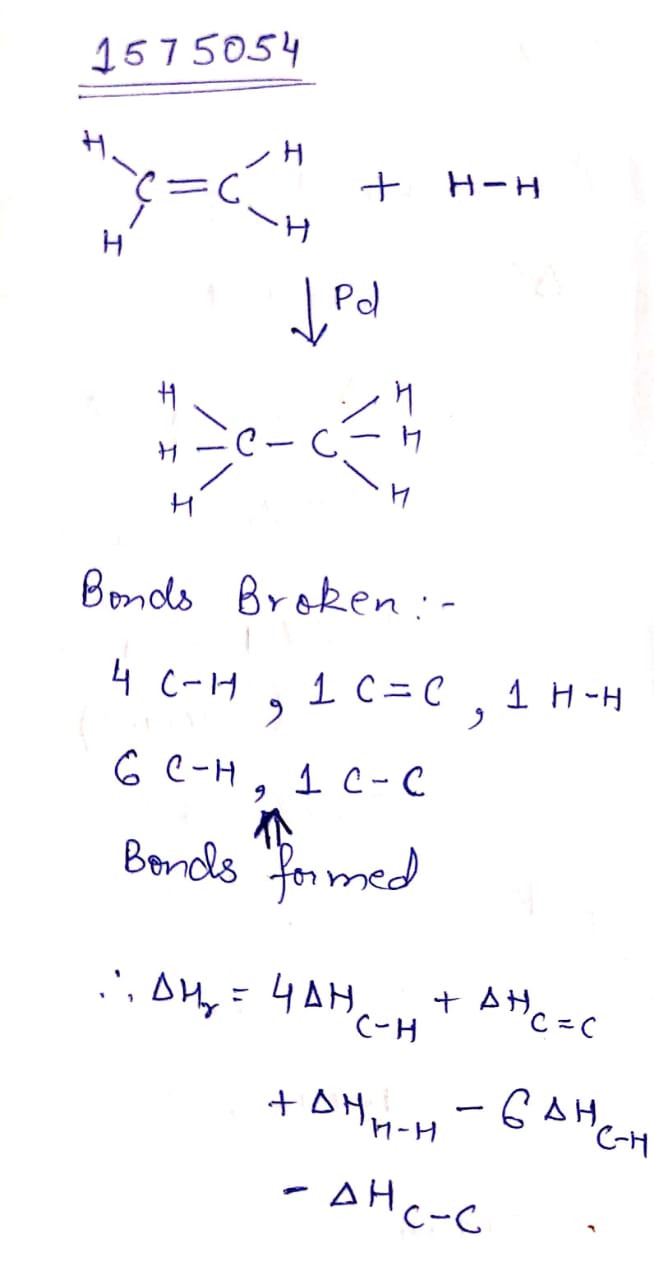 1575054
H H
C=C + H-H
H H
↓ Pd
H H
H-C-C-H
H H
Bonds Broken :-
4 C-H , 1 C=C , 1 H-H
6 C-H , 1 C-C
⇑
Bonds formed
∴ ΔHr = 4ΔH C-H + ΔH C=C
+ ΔH H-H - 6ΔH C-H
- ΔH C-C